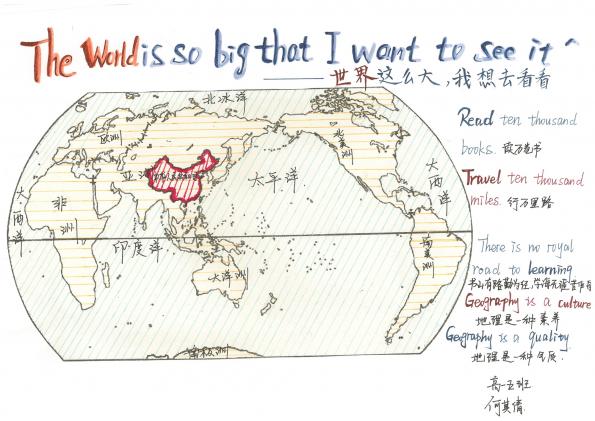 The World is so big that I want to see it ^
—— 世界这么大,我想去看看
北冰洋
欧洲
北美洲
亚洲
大西洋
非洲
太平洋
大西洋
印度洋
大洋洲
南美洲
南极洲
Read ten thousand
books. 读万卷书
Travel ten thousand
miles. 行万里路
There is no royal
road to learning
书山有路勤为径,学海无涯苦作舟
Geography is a culture
地理是一种素养
Geography is a quality
地理是一种气质.
高一五班
何其倩